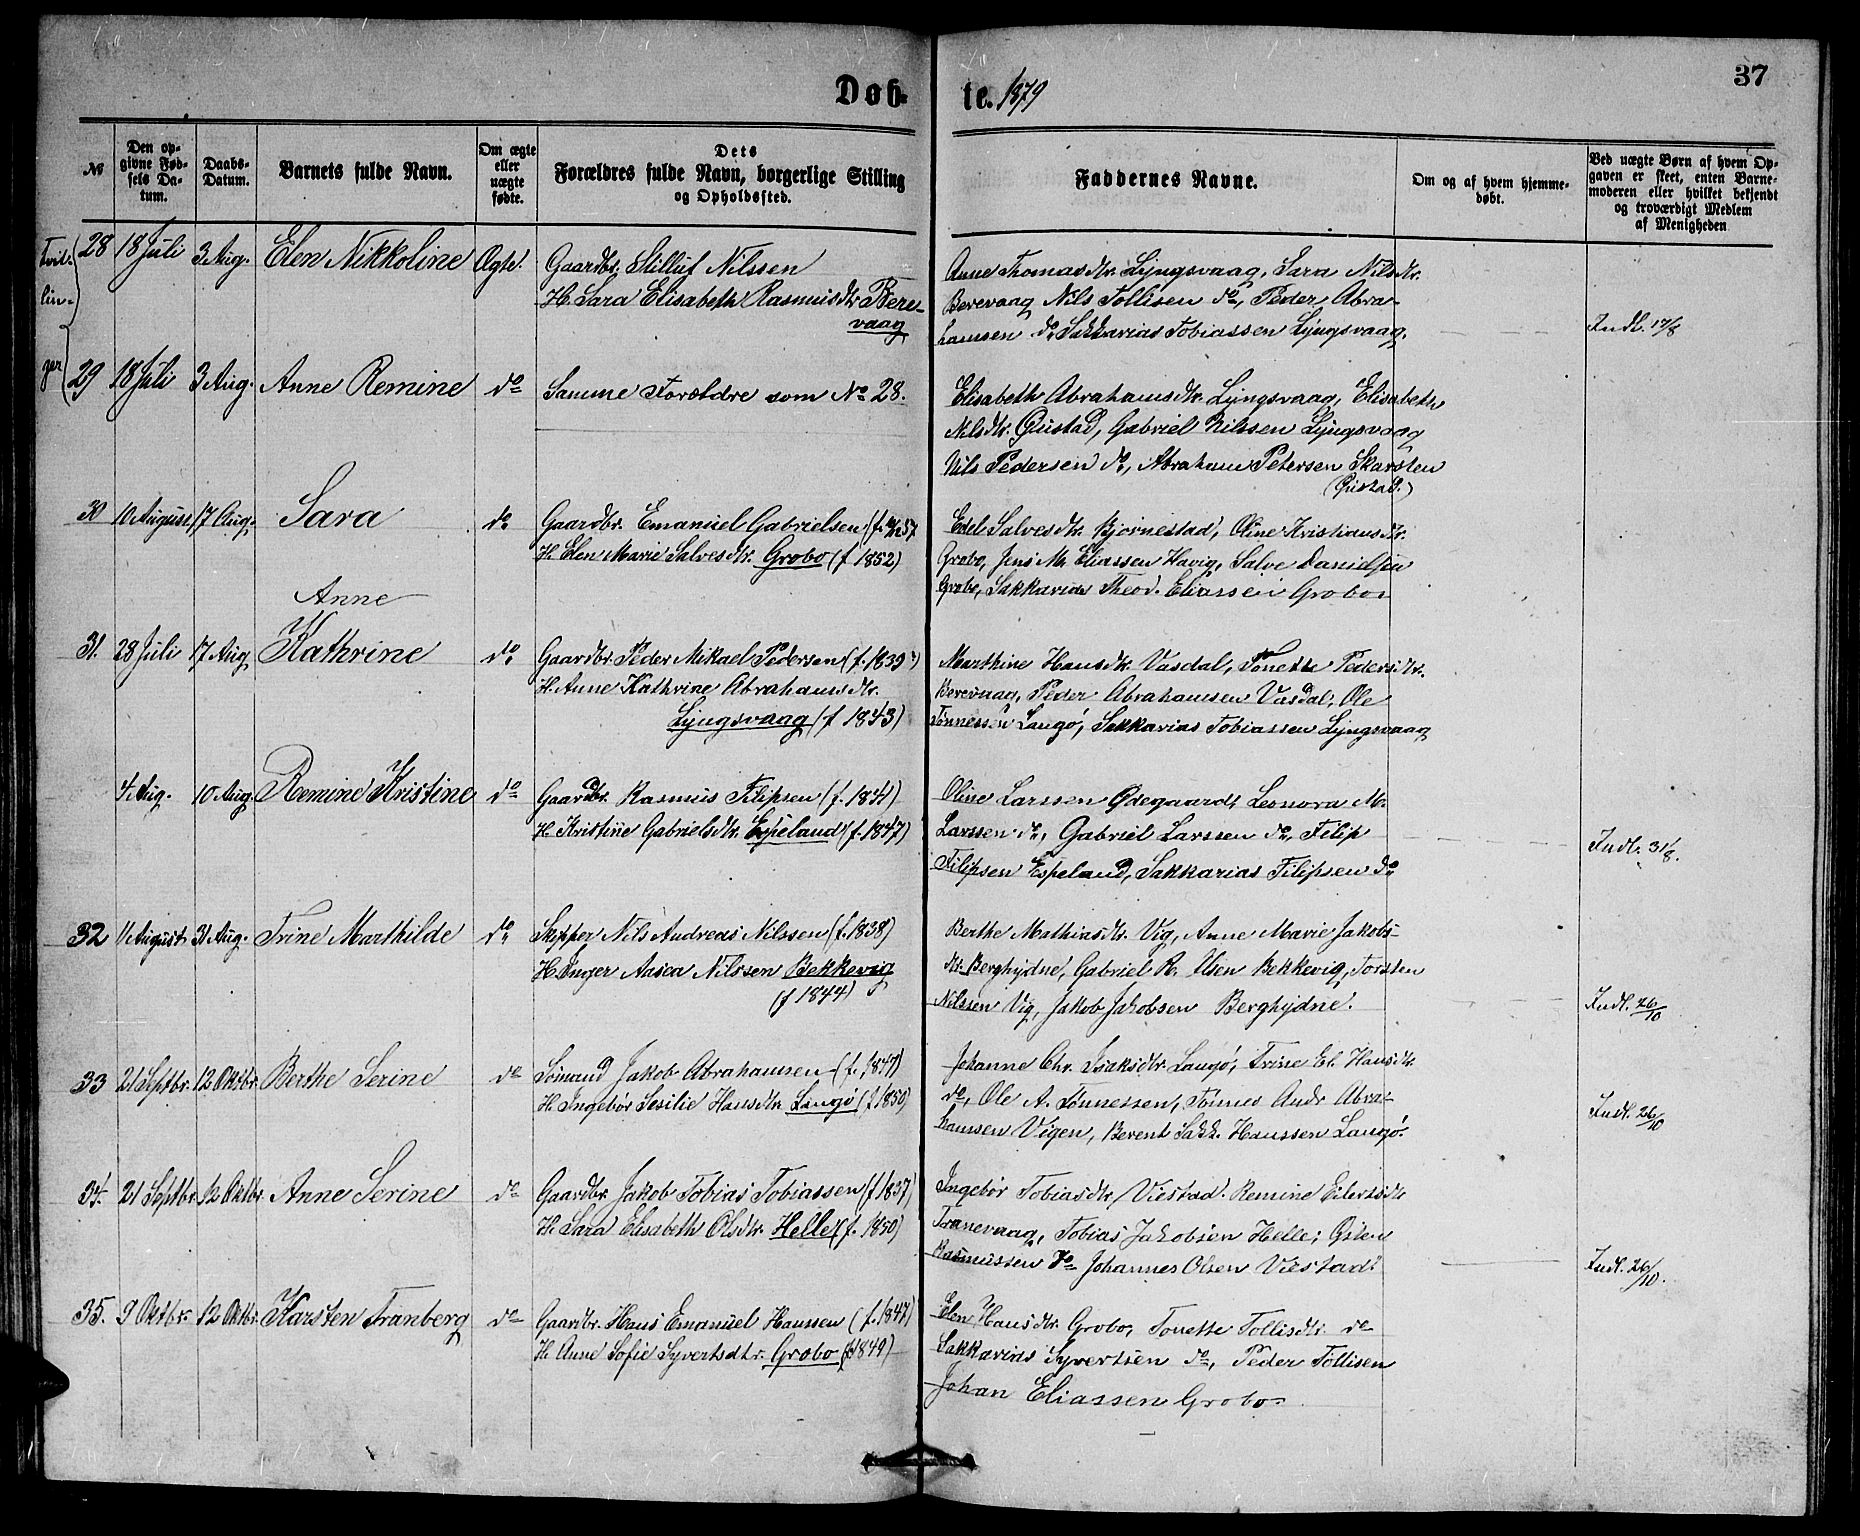 Døb-
te. 1879
37
No
Den op-
givne Fød-
sels Da-
tum.
Daabs-
Datum.
Barnets fulde Navn.
Om ægte
eller
uægte
fødte.
Dets
Forældres fulde Navn, borgerlige Stilling
og Opholdssted.
Faddernes Navne.
Om og af hvem hjemme-
døbt.
Ved uægte Børn af hvem Op-
gaven er skeet, enten Barne-
moderen eller hvilket bekjendt
og troværdigt Medlem
af Menigheden
Tvil-
lin-
ger
28 18 Juli 3 Aug. Elen Nikkoline Ægte.
Gaardbr. Nilssen
H. Sara Elisabeth Rasmusdtr. Bere-
vaag
Anne Thomasdtr. Lyngsvaag, Sara Nilsdtr.
Berevaag Nils Tollisen do, Peder Abra-
hamsen do Sakkarias Tobiassen Lyngsvaag.
Indl. 17/8
29 18 Juli 3 Aug. Anne Remine do
Samme Forældre som No 28.
Elisabeth Abrahamsdtr. Lyngsvaag, Elisabeth
Nilsdtr. Qustad, Gabriel Nilssen Lyngsvaag
Nils Pedersen do, Abraham Petersen Skarsten
(Qustad.)
30 10 August 17 Aug. Sara do
Gaardbr. Emanuel Gabrielsen
H. Elen Marie Salvesdtr. Grobo (f 1852)
Edel Salvesdtr. Bjørnestad, Oline Kristiansdtr.
Grobo, Jens M. Eliassen Havig, Salve Danielsen
Grobo, Sakkarias Theod. Eliassen Grobo.
Anne
31. 28 Juli 17 Aug Kathrine do
Gaardbr. Peder Mikael Pedersen (f. 1839)
H. Anne Kathrine Abrahamsdtr.
Lyngsvaag (f 1843)
Marthine Hansdtr. Vasdal, Tonette Pedersdtr.
Berevaag, Peder Abrahamsen Vasdal, Ole
Tønnessen Langø, Sakkarias Tobiassen Lyngsvaag
4. Aug. 10 Aug. Remine Kristine do
Gaardbr. Rasmus Filipsen (f. 1841)
H. Kristine Gabrielsdtr. Espeland (f. 1847)
Oline Larssen Ødegaard, Leonora M.
Larssen do, Gabriel Larssen do, Filip
Filipsen Espeland, Sakkarias Filipsen do
Indl. 31/8.
32 11 August 31 Aug. Trine Marthilde do
Skipper Nils Andreas Nilssen (f. 1838)
H. Inger Aasea Nilssen Bekkevig
(f 1844)
Berthe Mathiasdtr. Vig, Anne Marie Jakobs-
dtr. Berghydne, Gabriel R. Olsen Bekkevig, Torsten
Nilssen Vig, Jakob Jakobsen Berghydne.
Indl. 26/10
33 21 Septbr. 12 Oktbr. Berthe Serine do
Sømand Jakob Abrahamsen (f. 1847)
H. Ingebør Sesilie Hansdtr. Langø (f 1850)
Johanne Chr. Isaksdtr. Langø, Trine El. Hansdtr
do, Ole A. Tønnessen, Tønnes Andr Abra-
hamsen Vigen, Berent Sakk. Hanssen Langø.
Indl. 26/10
34. 21 Septbr. 12 Oktbr. Anne Serine do
Gaardbr. Jakob Tobias Tobiassen (f 1837)
H. Sara Elisabeth Olsdtr. Helle (f. 1850)
Ingebør Tobiasdtr. Viestad. Remine Eilertsdtr
Tranevaag, Tobias Jakobsen Helle, Osten
Rasmussen do Johannes Olsen Viestad.
Indl. 26/10.
35. 9 Oktbr. 12 Oktbr. Karsten Tranberg do
Gaardbr. Hans Emanuel Hanssen (f. 1847)
H. Anne Sofie Syvertsdtr. Grobo (f 1849)
Elen Hansdtr. Grobo, Tonette Tollisdtr. do
Sakkarias Syvertsen do, Peder Tollisen
Johan Eliassen Grobo.